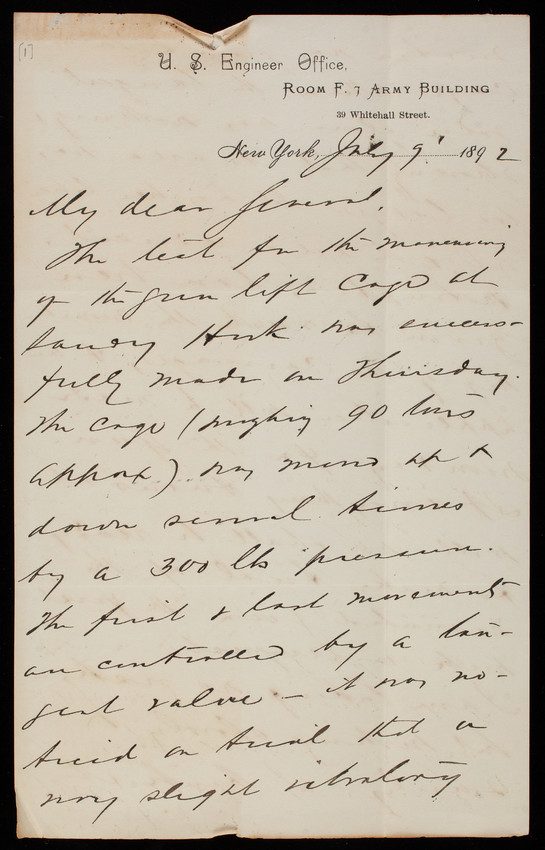 [1]
U. S. Engineer Office,
Room F. 7 Army Building
39 Whitehall Street.
New York, July 9' 1892
My dear General,
The test for the maneuvering
of the gun lift Cage at
Sandy Hook was success-
fully made on Thursday.
The Cage (weighing 90 tons
approx) was moved up &
down several times
by a 300 lb pressure.
The first & last movements
are controlled by a tan-
gent valve - it was no-
ticed on trial that a
very slight vibratory